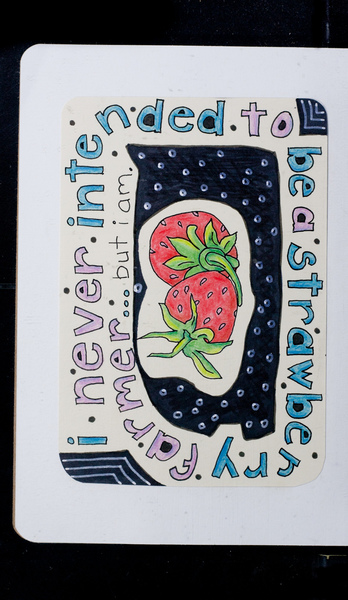 i never intended to
be a strawberry
farmer... but i am.